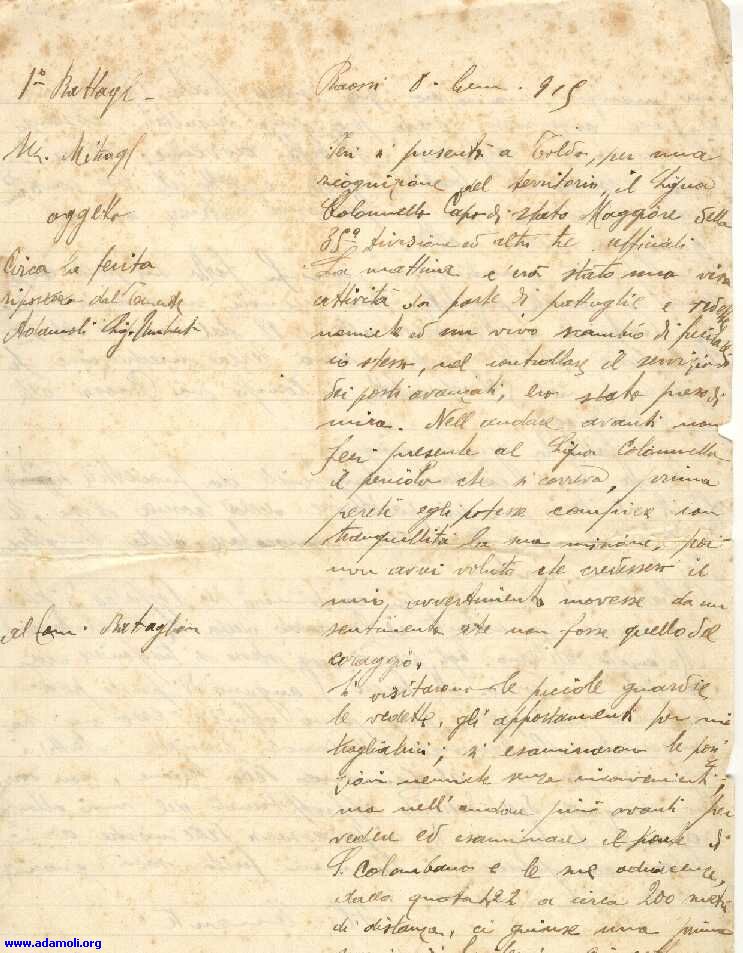 1º Battagl -
Raossi 8 - Genn. 915
Mitragl
oggetto
Circa la ferita
riportata dal Tenente
Adamoli Sig. Umberto
al Com. Battaglion
Ieri si presentò a Toldo, per una
ricognizione del territorio, il Signor
Colonnello Capo di Stato Maggiore della
35ª divisione ed altri tre ufficiali
La mattina c'era stato una viva
attività da parte di pattuglie e vedette
nemiche ed un vivo scambio di fucilate
io stesso, nel controllare il servizio
dei posti avanzati, ero stato preso di
mira. Nell'andare avanti non
feci presente al Signor Colonnello
il pericolo che si correva, prima
perché egli potesse compiere con
tranquillità la sua missione, poi
non avrei voluto che credessero il
mio avvertimento movesse da un
sentimento che non fosse quello del
coraggio.
Si visitarono le piccole guardie,
le vedette, gli appostamenti per mi
tragliatrici; si esaminarono le posi
zioni nemiche senza inconvenienti;
ma nell'andare più avanti per
vedere ed esaminare il paese di
S. Colombano e le sue adiacenze,
dalla quota 422 a circa 200 metri
di distanza, ci giunse una prima
www.adamoli.org